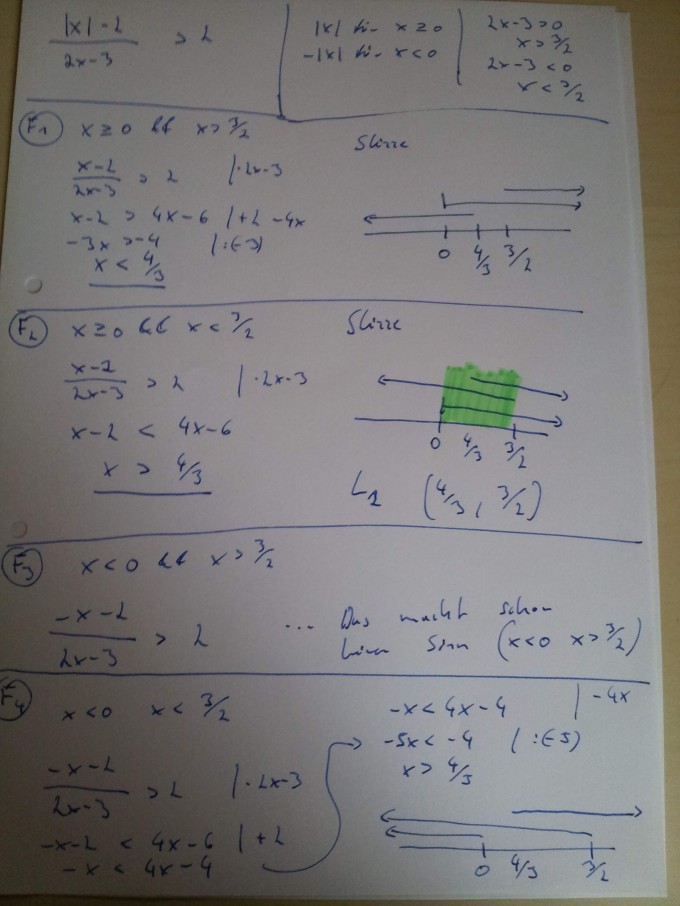 |x| - 2 / 2x-3 > 2
|x| für x ≥ 0
-|x| für x < 0
2x-3 > 0
x > 3/2
2x-3 < 0
x < 3/2
F1 x ≥ 0 && x > 3/2
Skizze
x-2 / 2x-3 > 2 | · 2x-3
x-2 > 4x-6 | +2 -4x
-3x > -4 | :(-3)
x < 4/3
0 4/3 3/2
F2 x ≥ 0 && x < 3/2
Skizze
x-2 / 2x-3 > 2 | · 2x-3
x-2 < 4x-6
x > 4/3
0 4/3 3/2
L2 (4/3, 3/2)
F3 x < 0 && x > 3/2
-x-2 / 2x-3 > 2 ... Das macht schon
keinen Sinn (x<0 x > 3/2)
F4 x < 0 x < 3/2
-x-2 / 2x-3 > 2 | · 2x-3
-x-2 < 4x-6 | +2
-x < 4x-4
-x < 4x-4 | -4x
-5x < -4 | :(-5)
x > 4/5
0 4/3 3/2